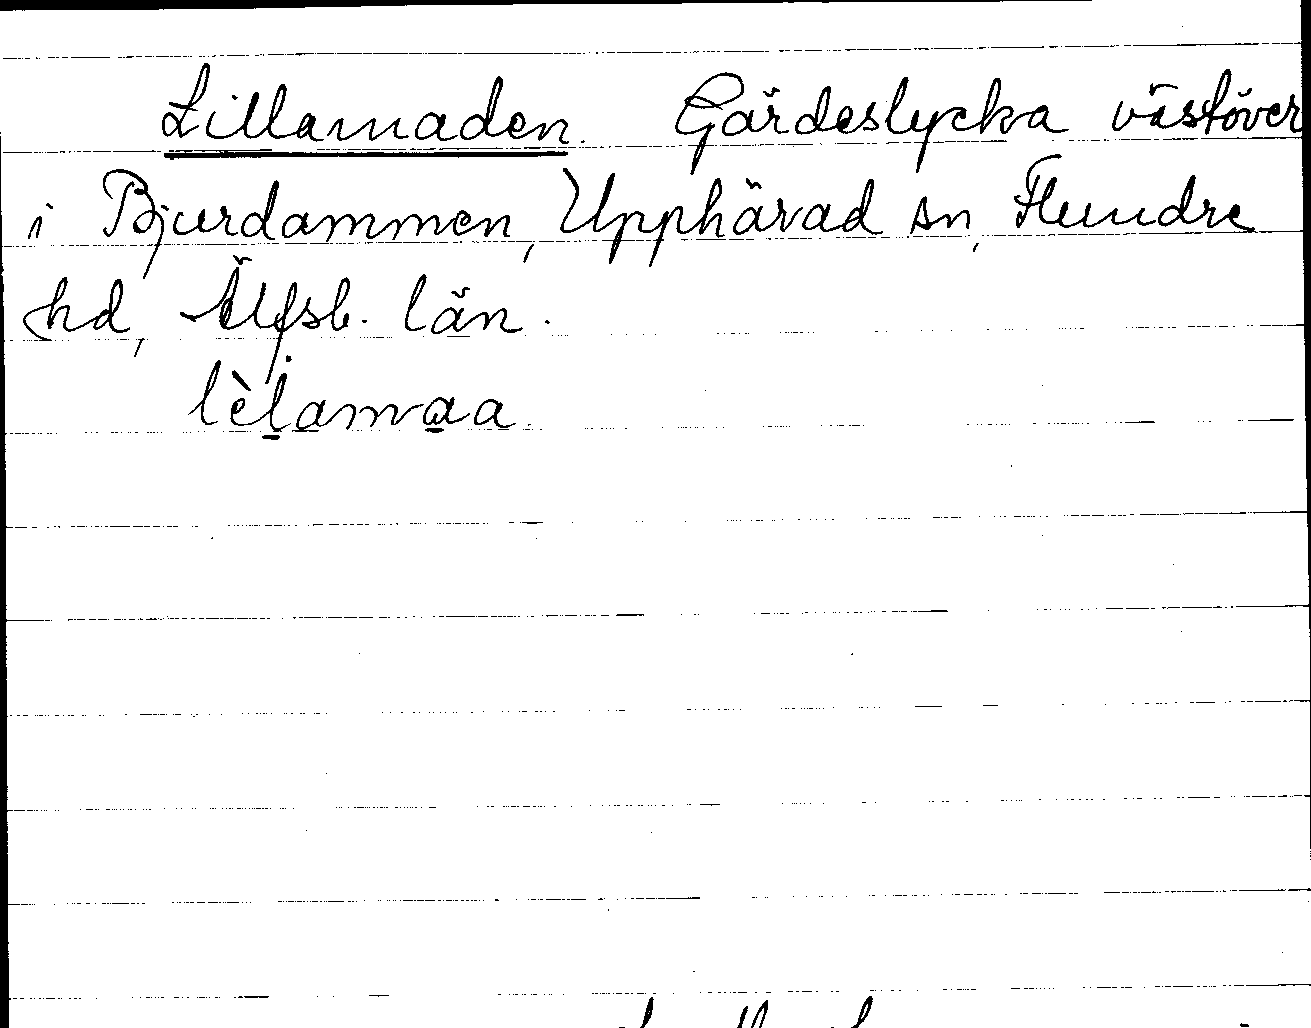 Lillamaden. Gärdeslycka västöver
i Bjurdammen, Upphärad sn, Flundre
hd, Älfsb. län.
lèl̠ama̠a.